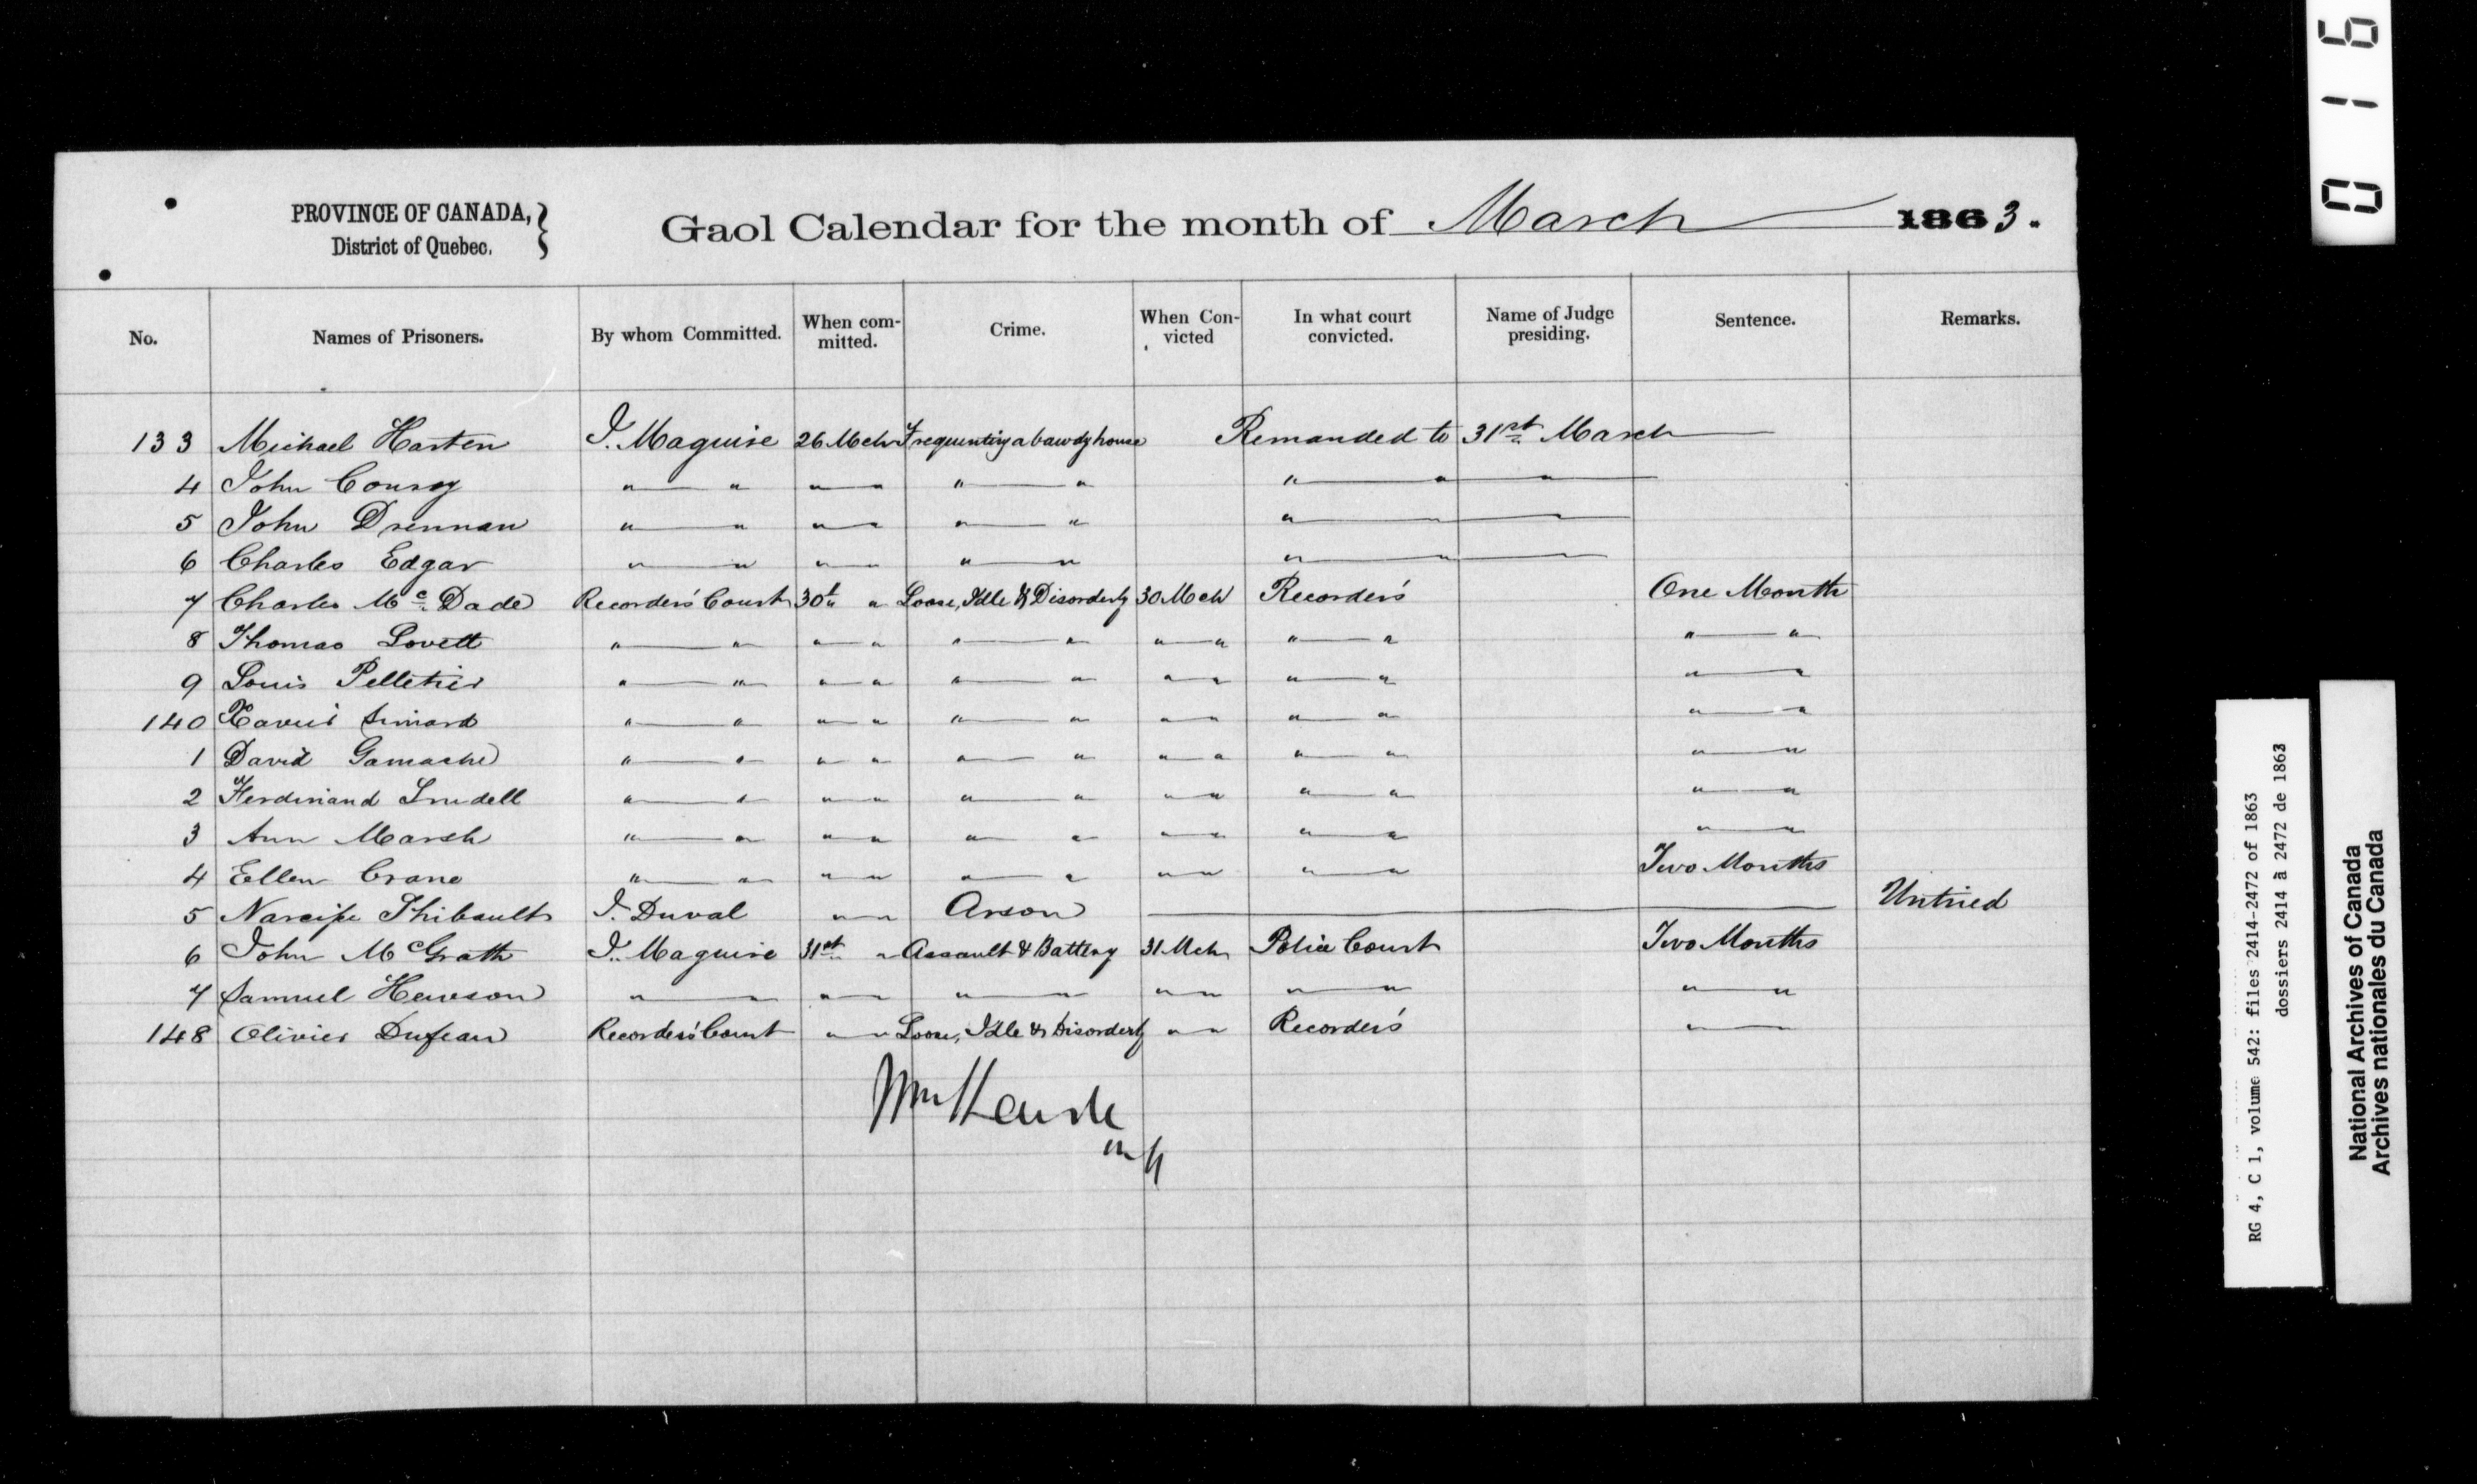 PROVINCE OF CANADA,
District of Quebec.
Gaol Calendar for the month of March 1863.
No. Names of Prisoners. By whom Committed. When com-mitted. Crime. When Con-victed In what court convicted. Name of Judge presiding. Sentence. Remarks.
133 Michael Harten J. Maguire 26 Mch Frequenting a bawdy house Remanded to 31st March
4 John Conroy " " " " " " " " "
5 John Drennan " " " " " " " " "
6 Charles Edgar " " " " " " " "
7 Charles Mc Dade Recorders' Court 30th " Loose, Idle & Disorderly 30 Mch Recorder's One Month
8 Thomas Lovett " " " " " " " " " " " "
9 Louis Pelletier " " " " " " " " " " " "
140 Xavier Simard " " " " " " " " " " " "
1 David Gamache " " " " " " " " " " " "
2 Ferdinand Trudell " " " " " " " " " " " "
3 Ann Marsh " " " " " " " " " " " "
4 Ellen Crane " " " " " " " " " " Two Months
5 Narcisse Thibault J. Duval " " Arson Untried
6 John McGrath J. Maguire 31st " Assault & Battery 31 Mch Police Court Two Months
7 Samuel Hewson " " " " " " " " " " " "
148 Olivier Dufean Recorders' Court " " Loose, Idle & Disorderly " " Recorder's " "
0116
RG 4, C 1, volume 542: files 2414-2472 of 1863
dossiers 2414 à 2472 de 1863
National Archives of Canada
Archives nationales du Canada